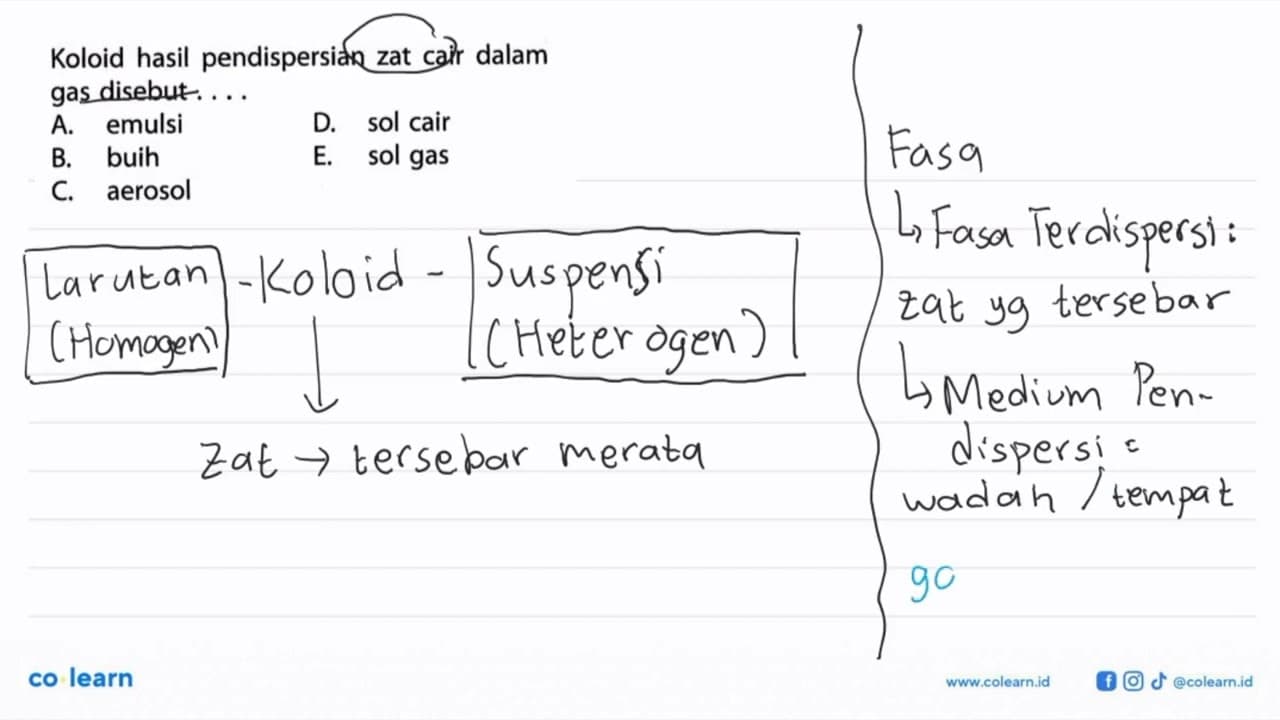 Koloid hasil pendispersian zat cair dalam
gas disebut . . . .
A. emulsi
D. sol cair
B. buih
E. sol gas
C. aerosol
Larutan
(Homogen)
- Koloid -
Suspensi
(Heterogen)
Zat → tersebar merata
Fasa
↳ Fasa Terdispersi :
zat yg tersebar
↳ Medium Pen-
dispersi :
wadah / tempat
co·learn
www.colearn.id
@colearn.id